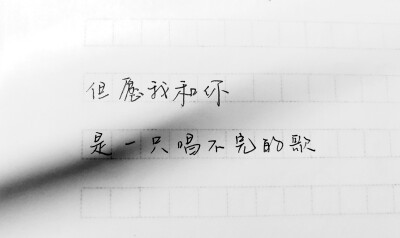 但愿我和你
是一只唱不完的歌